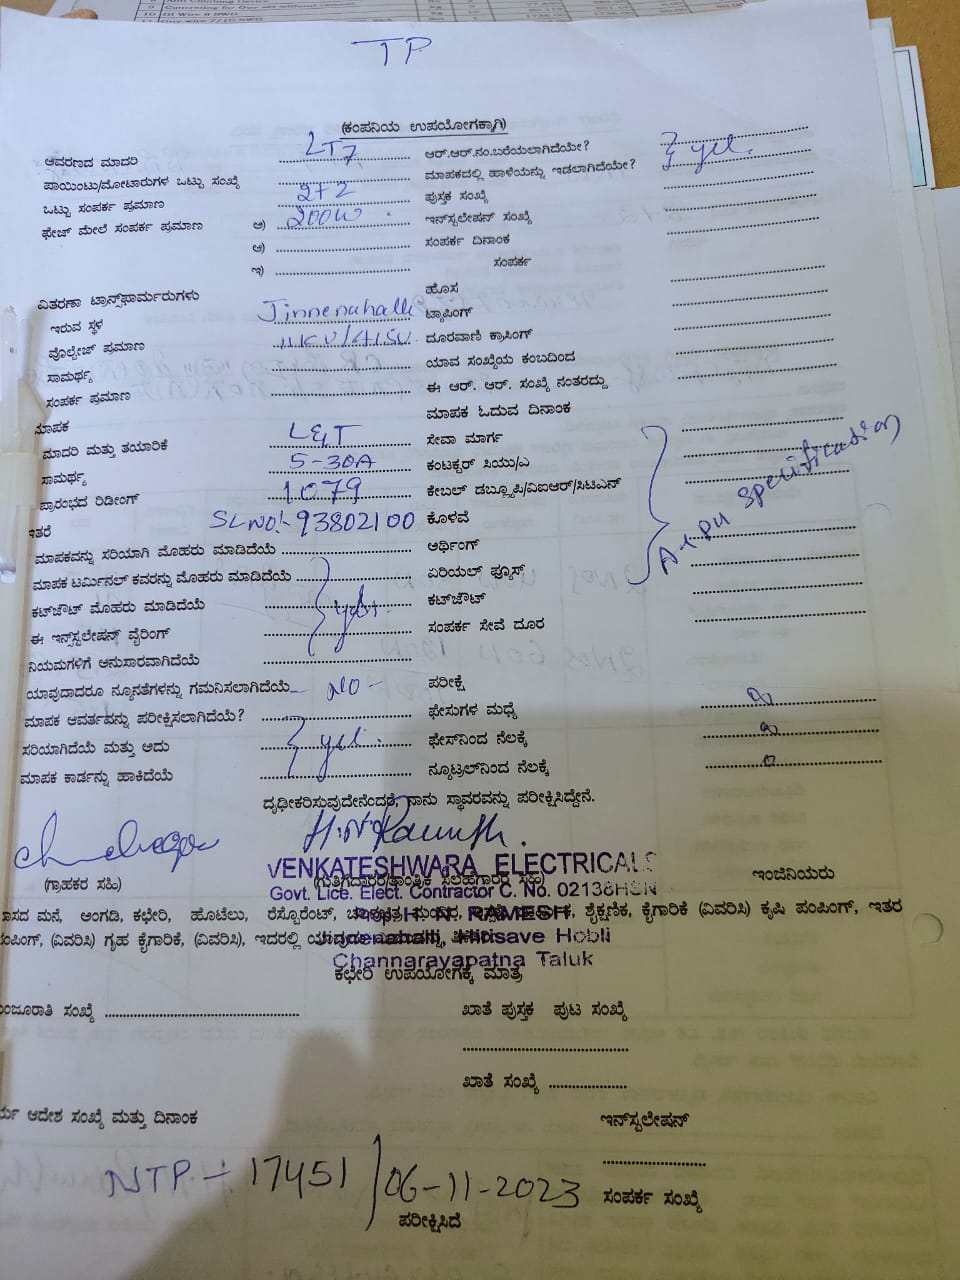 TP
(ಕಂಪನಿಯ ಉಪಯೋಗಕ್ಕಾಗಿ)
ಆವರಣದ ಮಾದರಿ LT7 ಆರ್.ಆರ್.ನಂ.ಬರೆಯಲಾಗಿದೆಯೇ?
ಪಾಯಿಂಟು/ಮೋಟಾರುಗಳ ಒಟ್ಟು ಸಂಖ್ಯೆ ಮಾಪಕದಲ್ಲಿ ಹಾಳೆಯನ್ನು ಇಡಲಾಗಿದೆಯೇ? } yes.
ಒಟ್ಟು ಸಂಪರ್ಕ ಪ್ರಮಾಣ 2+2 ಪುಸ್ತಕ ಸಂಖ್ಯೆ
ಫೇಜ್ ಮೇಲೆ ಸಂಪರ್ಕ ಪ್ರಮಾಣ ಅ) 200W ಇನ್‌ಸ್ಟಲೇಷನ್ ಸಂಖ್ಯೆ
ಆ) ಸಂಪರ್ಕ ದಿನಾಂಕ
ಇ) ಸಂಪರ್ಕ
ವಿತರಣಾ ಟ್ರಾನ್ಸ್‌ಫಾರ್ಮರುಗಳು ಹೊಸ
ಇರುವ ಸ್ಥಳ Jinnenahalli ಟ್ಯಾಪಿಂಗ್
ವೊಲ್ಟೇಜ್ ಪ್ರಮಾಣ 11KV/415V. ದೂರವಾಣಿ ಕ್ರಾಸಿಂಗ್
ಸಾಮರ್ಥ್ಯ ಯಾವ ಸಂಖ್ಯೆಯ ಕಂಬದಿಂದ
ಸಂಪರ್ಕ ಪ್ರಮಾಣ ಈ ಆರ್. ಆರ್. ಸಂಖ್ಯೆ ನಂತರದ್ದು
ಮಾಪಕ ಮಾಪಕ ಓದುವ ದಿನಾಂಕ
ಮಾದರಿ ಮತ್ತು ತಯಾರಿಕೆ L&T ಸೇವಾ ಮಾರ್ಗ
ಸಾಮರ್ಥ್ಯ 5-30A ಕಂಟಕ್ಟರ್ ಸಿಯು/ಎ
ಪ್ರಾರಂಭದ ರಿಡೀಂಗ್ 1079 ಕೇಬಲ್ ಡಬ್ಲ್ಯೂಪಿ/ವಿಐಆರ್/ಸಿಟಿಎಸ್
ಇತರೆ SL NO:- 93802100 ಕೊಳವೆ
ಮಾಪಕವನ್ನು ಸರಿಯಾಗಿ ಮೊಹರು ಮಾಡಿದೆಯೆ ಆರ್ಥಿಂಗ್
ಮಾಪಕ ಟರ್ಮಿನಲ್ ಕವರನ್ನು ಮೊಹರು ಮಾಡಿದೆಯೆ ಏರಿಯಲ್ ಫ್ಯೂಸ್ specification
ಕಟ್‌ಔಟ್ ಮೊಹರು ಮಾಡಿದೆಯೆ ಕಟ್‌ಔಟ್
ಈ ಇನ್ಸ್‌ಸ್ಟಲೇಷನ್ ವೈರಿಂಗ್ ಸಂಪರ್ಕ ಸೇವೆ ದೂರ
ನಿಯಮಗಳಿಗೆ ಅನುಸಾರವಾಗಿದೆಯೆ
ಯಾವುದಾದರೂ ನ್ಯೂನತೆಗಳನ್ನು ಗಮನಿಸಲಾಗಿದೆಯೆ - NO - ಪರೀಕ್ಷೆ
ಮಾಪಕ ಆವರ್ತವನ್ನು ಪರೀಕ್ಷಿಸಲಾಗಿದೆಯೆ? ಫೇಸುಗಳ ಮಧ್ಯೆ
ಸರಿಯಾಗಿದೆಯೆ ಮತ್ತು ಅದು } yes. ಫೇಸ್‌ನಿಂದ ನೆಲಕ್ಕೆ
ಮಾಪಕ ಕಾರ್ಡನ್ನು ಹಾಕಿದೆಯೆ ನ್ಯೂಟ್ರಲ್‌ನಿಂದ ನೆಲಕ್ಕೆ
ದೃಢೀಕರಿಸುವುದೇನೆಂದರೆ, ನಾನು ಸ್ಥಾವರವನ್ನು ಪರೀಕ್ಷಿಸಿದ್ದೇನೆ.
VENKATESHWARA ELECTRICALS
(ಗ್ರಾಹಕರ ಸಹಿ) ಇಂಜಿನಿಯರು
Govt. Lice. Elect. Contractor C. No. 02138HSN
ಮನೆ, ಅಂಗಡಿ, ಕಛೇರಿ, ಹೋಟೆಲು, ರೆಸ್ಟೊರೆಂಟ್, ಶೈಕ್ಷಣಿಕ, ಕೈಗಾರಿಕೆ (ವಿವರಿಸಿ) ಕೃಷಿ ಪಂಪಿಂಗ್, ಇತರ
H.N. RAMESH
(ವಿವರಿಸಿ) ಗೃಹ ಕೈಗಾರಿಕೆ, (ವಿವರಿಸಿ), ಇದರಲ್ಲಿ
Jinnenahalli, Hirisave Hobli
Channarayapatna Taluk
ಕಛೇರಿ ಉಪಯೋಗಕ್ಕೆ ಮಾತ್ರ
ಸಂಖ್ಯೆ ಖಾತೆ ಪುಸ್ತಕ ಪುಟ ಸಂಖ್ಯೆ
ಖಾತೆ ಸಂಖ್ಯೆ
ಆದೇಶ ಸಂಖ್ಯೆ ಮತ್ತು ದಿನಾಂಕ ಇನ್‌ಸ್ಟಲೇಷನ್
NTP - 17451 / 06-11-2023 ಸಂಪರ್ಕ ಸಂಖ್ಯೆ
ಪರೀಕ್ಷಿಸಿದೆ